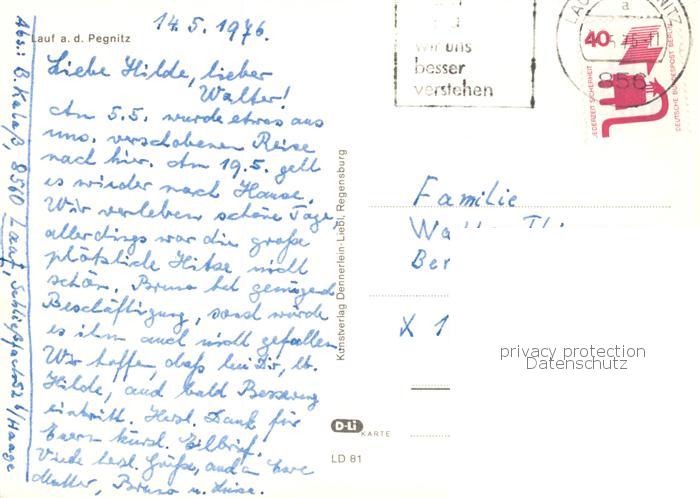 14.5.1976.
Lauf a. d. Pegnitz
Liebe Hilde, lieber
Walter!
Am 5.5. wurde etwas aus
uns. verschobenen Reise
nach hier. Am 19.5. geht
es wieder nach Hause.
Wir verleben schöne Tage,
allerdings war die große
plötzliche Hitze nicht
schön. Bruno hat genügend
Beschäftigung, sonst würde
es ihm auch nicht gefallen.
Wir hoffen, daß bei Dir, lb.
Hilde, auch bald Besserung
eintritt. Herzl. Dank für
Euern kürzl. Eilbrief.
Viele herzl. Grüße, auch a. Eure
Mutter, Bruno u. Luise.
Abs: B. Kalaß, 8560 Lauf, Schließfach 526/Haage
Kunstverlag Dennerlein-Liebl, Regensburg
wir uns
besser
verstehen
LAUF PEGNITZ
a
856
40
JEDERZEIT SICHERHEIT
DEUTSCHE BUNDESPOST BERLIN
Familie
Ber
X 1
privacy protection
Datenschutz
D-Li KARTE
LD 81